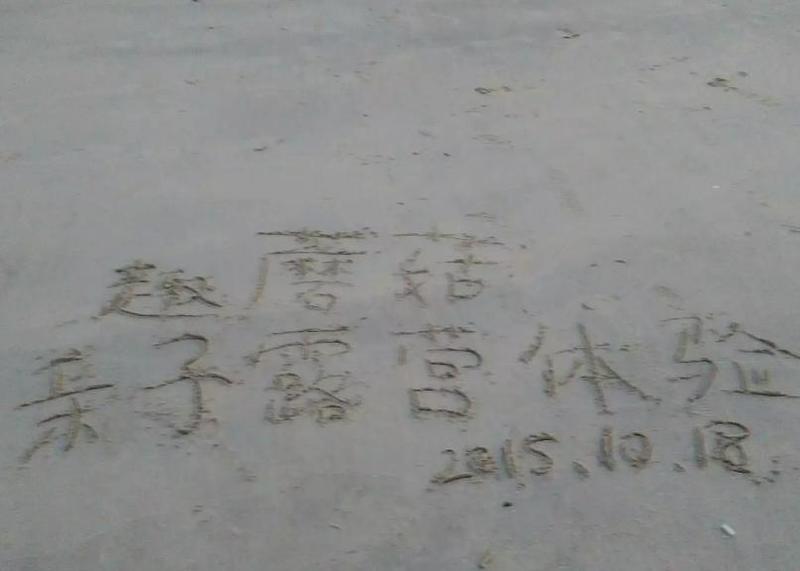 趣蘑菇
亲子露营体验
2015.10.18